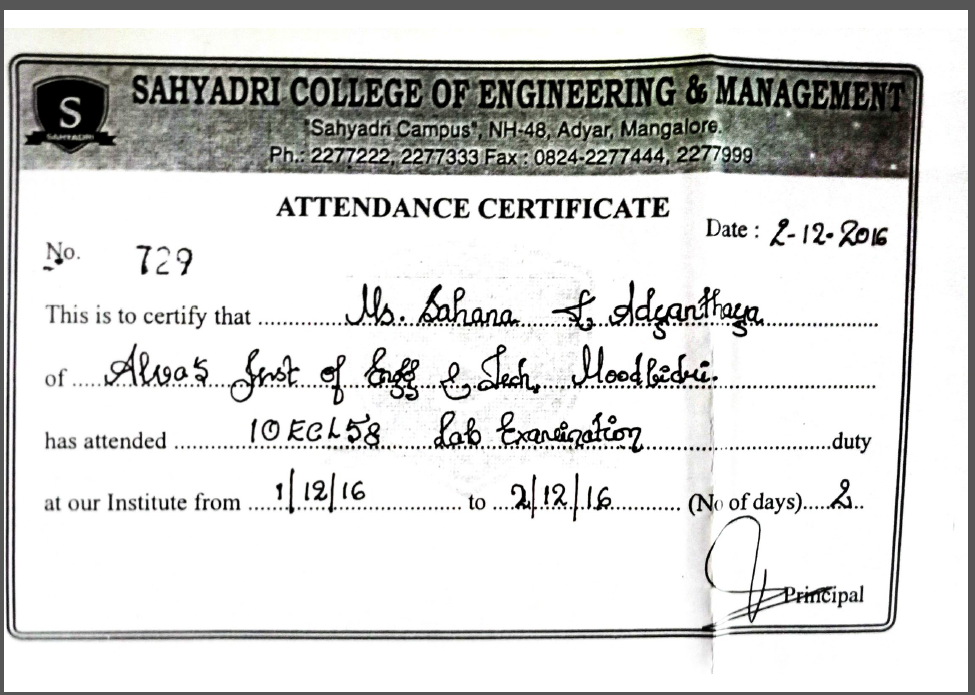 S
SAHYADRI
SAHYADRI COLLEGE OF ENGINEERING & MANAGEMENT
"Sahyadri Campus", NH-48, Adyar, Mangalore.
Ph.: 2277222, 2277333 Fax : 0824-2277444, 2277999
ATTENDANCE CERTIFICATE
Date : 2-12-2016
No. 729
This is to certify that Ms. Sahana Adyanthaya
of Alva's Inst of Engg & Tech, Moodbidri.
has attended 10ECL58 Lab Examination duty
at our Institute from 1/12/16 to 2/12/16 (No of days) 2
Principal